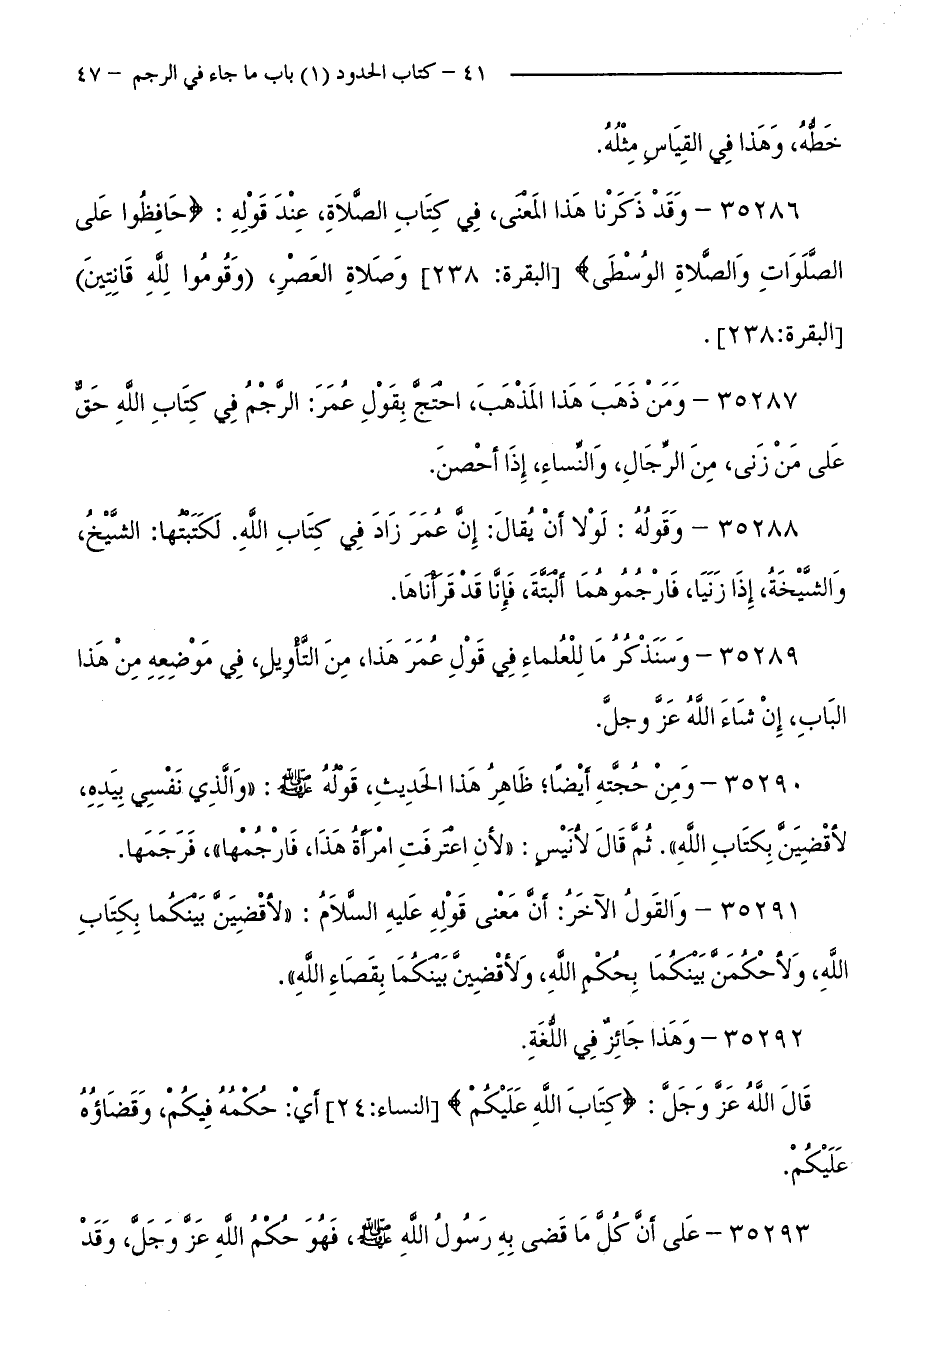 ٤١ – كتاب الحدود (١) باب ما جاء في الرجم – ٤٧
خَطُّهُ، وَهَذا فِي القِيَاسِ مِثْلُهُ.
٣٥٢٨٦ – وَقَدْ ذَكَرْنا هَذا المَعْنَى، فِي كِتَابِ الصَّلَاةِ، عِنْدَ قَوْلِهِ : ﴿حَافِظُوا عَلى
الصَّلَوَاتِ وَالصَّلَاةِ الوُسْطَى﴾ [البقرة: ٢٣٨] وَصَلَاةِ العَصْرِ، (وَقُومُوا لِلَّهِ قَانِتِينَ)
[البقرة:٢٣٨] .
٣٥٢٨٧ – وَمَنْ ذَهَبَ هَذا المَذْهَبَ، احْتَجَّ بِقَوْلِ عُمَرَ: الرَّجْمُ فِي كِتَابِ اللَّهِ حَقٌّ
عَلى مَنْ زَنى، مِنَ الرِّجَالِ، وَالنِّساءِ، إِذَا أحْصنَ.
٣٥٢٨٨ – وَقَوْلُهُ : لَوْلا أنْ يُقالَ: إنَّ عُمَرَ زَادَ فِي كِتَابِ اللَّهِ. لَكَتَبْتُها: الشَّيْخُ،
وَالشَّيْخَةُ، إِذَا زَنَيَا، فَارْجُمُوهُمَا أَلْبَتَّةَ، فَإِنَّا قَدْ قَرَأْنَاهَا.
٣٥٢٨٩ – وَسَنَذْكُرُ مَا لِلْعُلماءِ فِي قَوْلِ عُمَرَ هَذا، مِنَ التَّأْوِيلِ، فِي مَوْضِعِهِ مِنْ هَذا
البَابِ، إِنْ شَاءَ اللَّهُ عَزَّ وجلَّ.
٣٥٢٩٠ – وَمِنْ حُجَّتِهِ أَيْضًا؛ ظَاهِرُ هَذا الحَدِيثِ، قَوْلُهُ ﷺ : «وَالَّذِي نَفْسِي بِيَدِهِ،
لأقْضِيَنَّ بِكِتَابِ اللَّهِ». ثُمَّ قَالَ لأُنَيْسٍ : «لأنِ اعْتَرفَتِ امْرَأةُ هَذَا، فَارْجُمْها»، فَرَجَمَها.
٣٥٢٩١ – وَالقَولُ الآخَرُ: أنَّ مَعْنى قَوْلِهِ عَليهِ السَّلاَمُ : «لأقْضِيَنَّ بَيْنَكُما بِكِتَابِ
اللَّهِ، وَلأحْكُمَنَّ بَيْنَكُمَا بِحُكْمِ اللَّهِ، وَلأقْضِينَّ بَيْنَكُمَا بِقَضَاءِ اللَّهِ».
٣٥٢٩٢ – وَهَذا جَائِزٌ فِي اللُّغَةِ.
قَالَ اللَّهُ عَزَّ وَجَلَّ : ﴿كِتَابَ اللَّهِ عَلَيْكُمْ﴾ [النساء:٢٤] أيْ: حُكْمُهُ فِيكُمْ، وَقَضَاؤُهُ
عَلَيْكُمْ.
٣٥٢٩٣ – عَلى أنَّ كُلَّ مَا قَضى بِهِ رَسُولُ اللَّهِ ﷺ، فَهُوَ حُكْمُ اللَّهِ عَزَّ وَجَلَّ، وَقَدْ